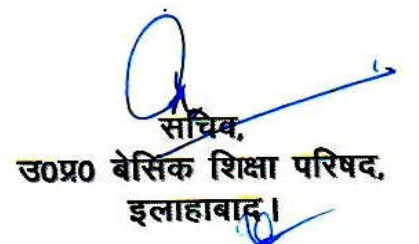 सचिव,
उ०प्र० बेसिक शिक्षा परिषद,
इलाहाबाद।